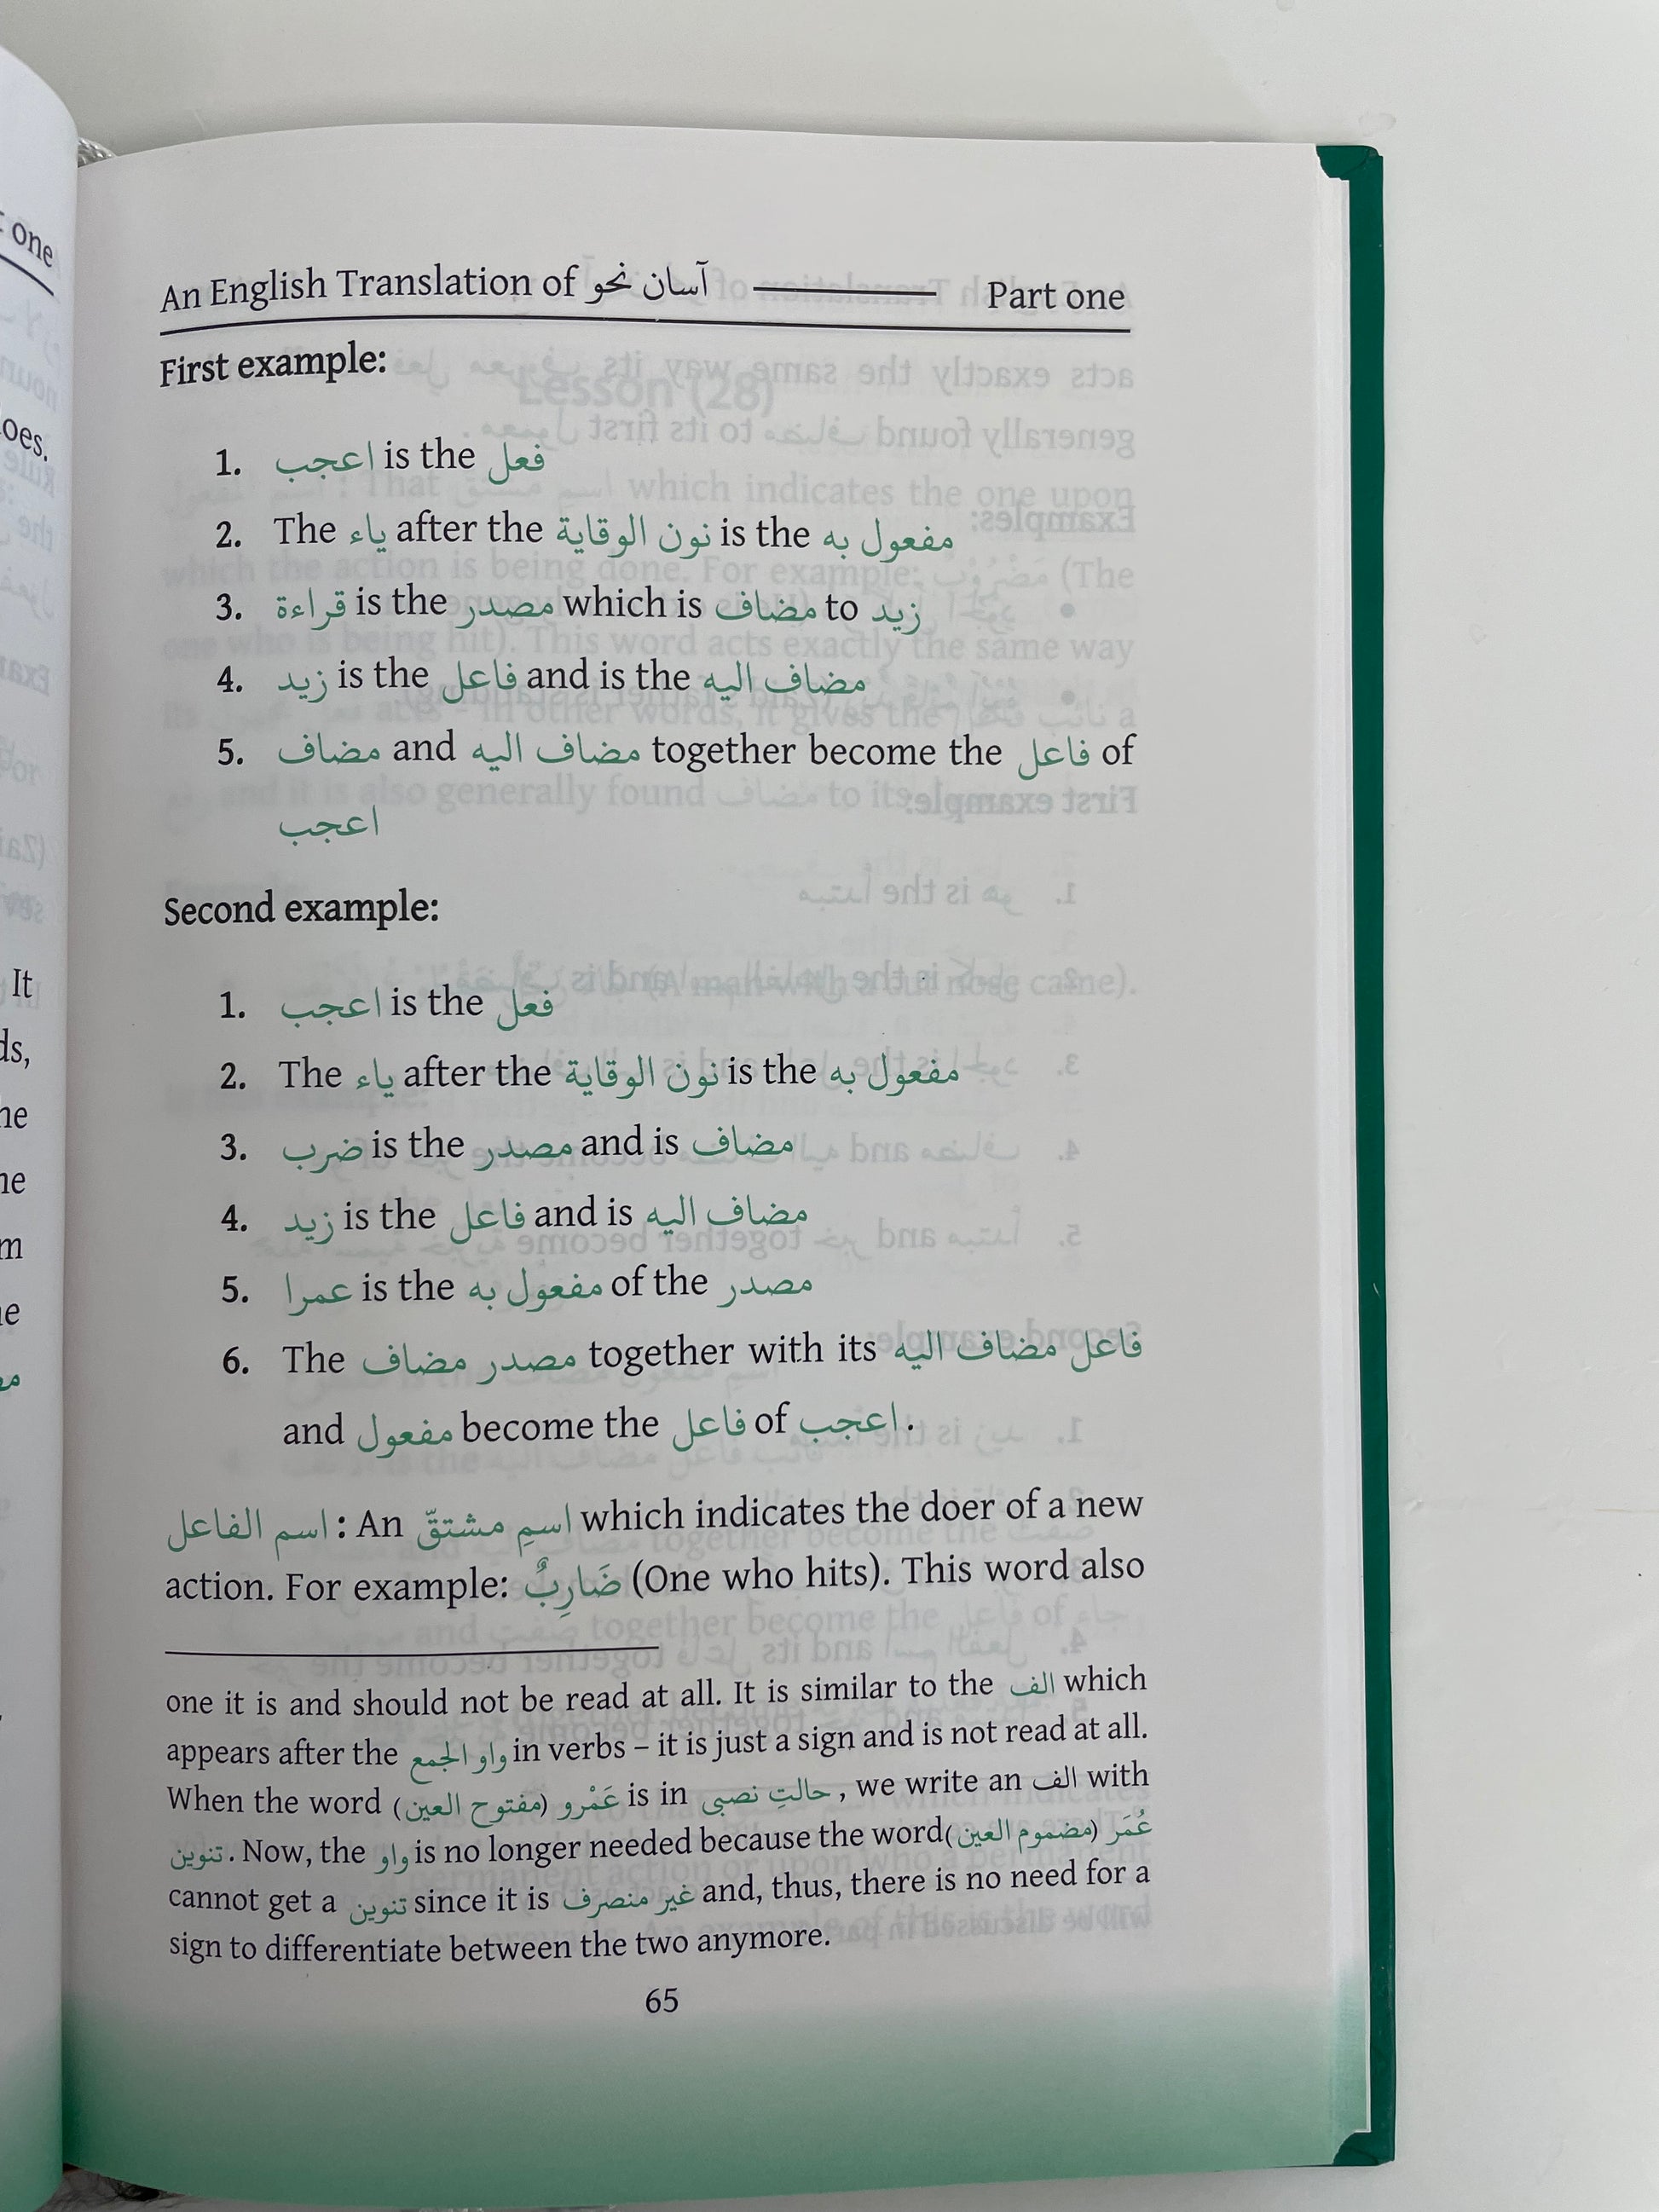 An English Translation of آسان نحو ——— Part one
First example:
1. اعجب is the فعل
2. The ياء after the نون الوقاية is the مفعول به
3. قراءة is the مصدر which is مضاف to زيد
4. زيد is the فاعل and is the مضاف اليه
5. مضاف and مضاف اليه together become the فاعل of
اعجب
Second example:
1. اعجب is the فعل
2. The ياء after the نون الوقاية is the مفعول به
3. ضرب is the مصدر and is مضاف
4. زيد is the فاعل and is مضاف اليه
5. عمرا is the مفعول به of the مصدر
6. The مصدر مضاف together with its فاعل مضاف اليه
and مفعول become the فاعل of اعجب.
اسم الفاعل : An اسمِ مشتقّ which indicates the doer of a new
action. For example: ضَارِبٌ (One who hits). This word also
one it is and should not be read at all. It is similar to the الف which
appears after the واو الجمع in verbs – it is just a sign and is not read at all.
When the word عَمْرو (مفتوح العين) is in حالتِ نصبی, we write an الف with
تنوين. Now, the واو is no longer needed because the word عُمَر (مضموم العين)
cannot get a تنوين since it is غير منصرف and, thus, there is no need for a
sign to differentiate between the two anymore.
65